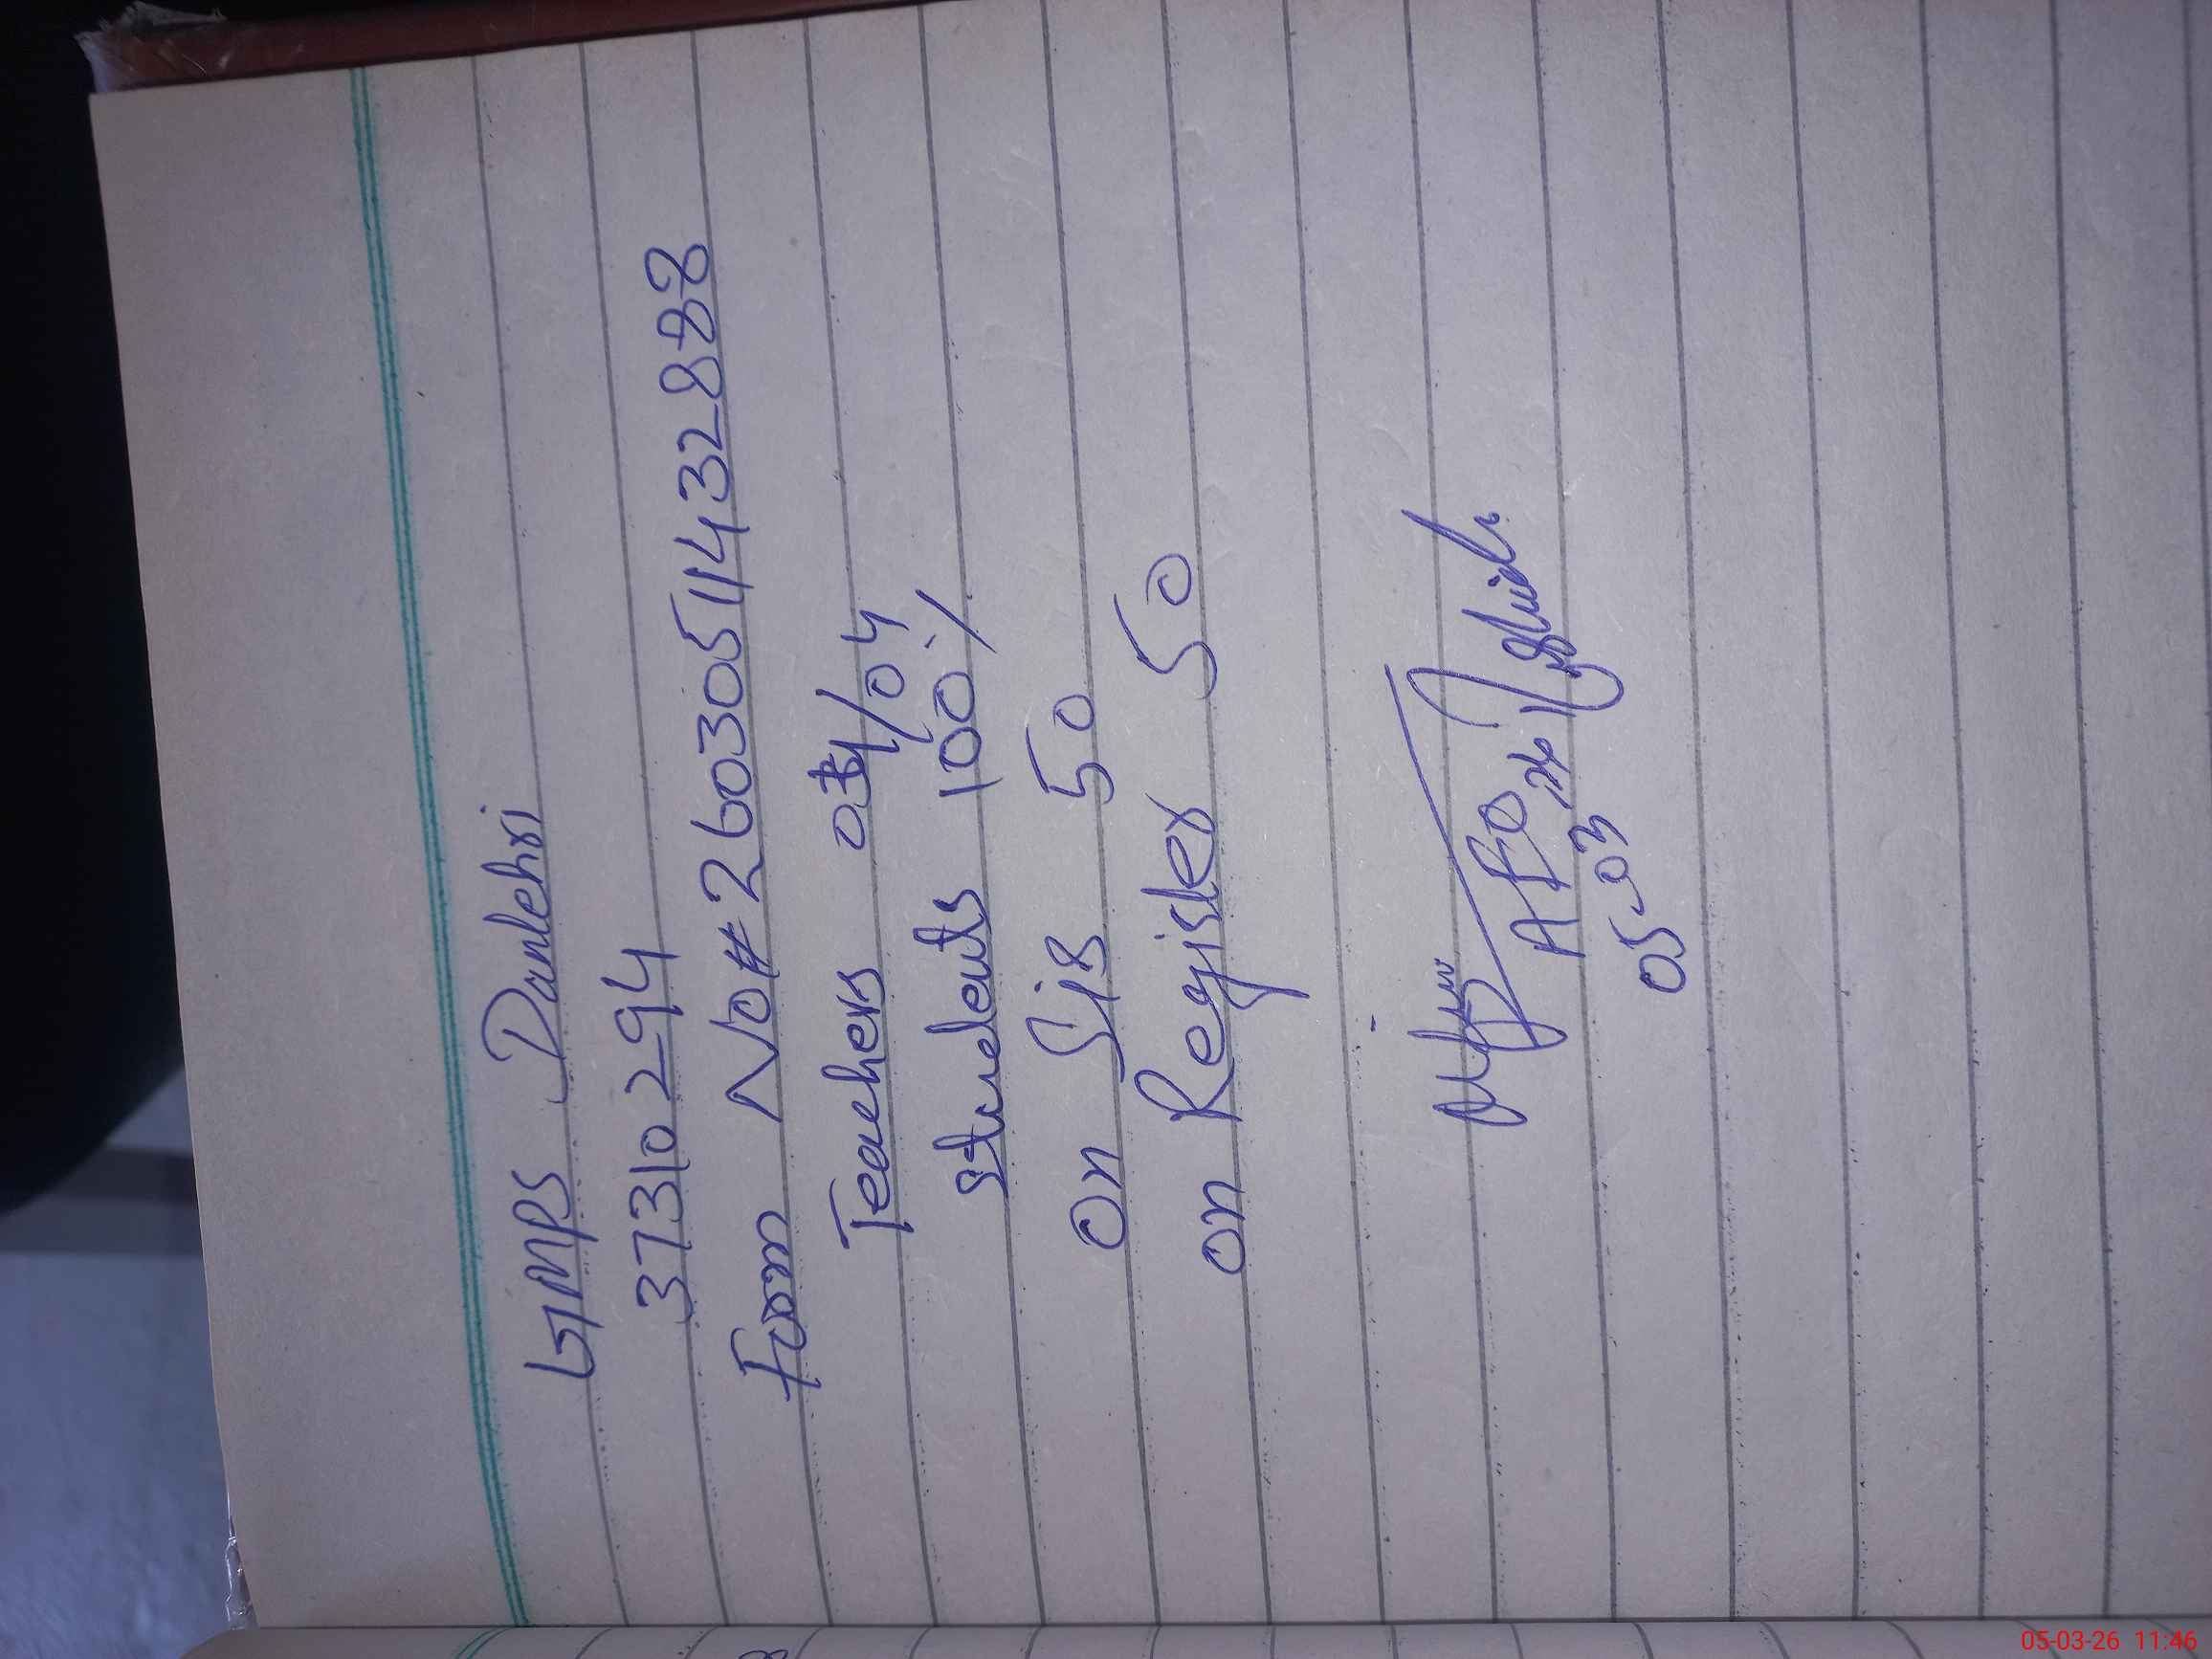 GMPS Danlehri
37310294
Form No# 26030511432888
Teachers 04/04
students 100%
on Sis 50
on Register 50
AEO
05-03-26
05-03-26 11:46